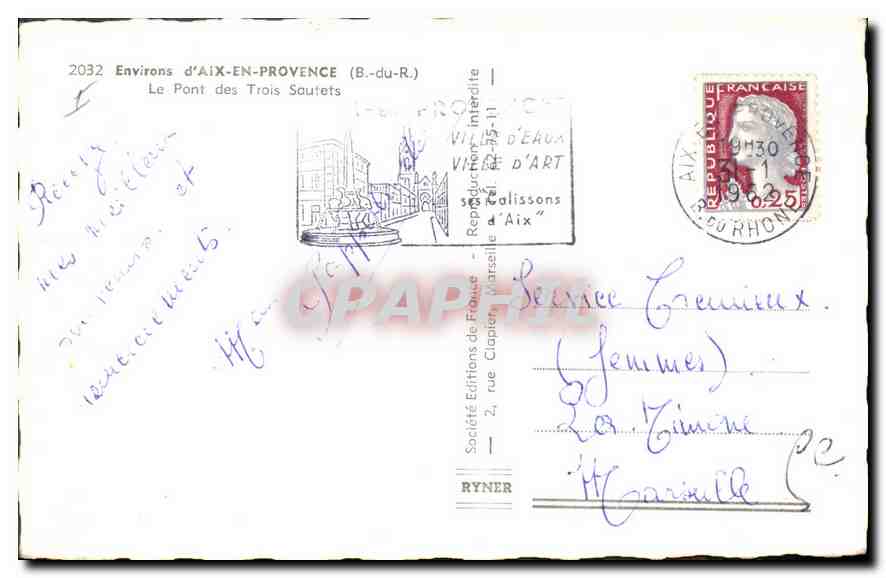 2032 Environs d'AIX-EN-PROVENCE (B.-du-R.)
Le Pont des Trois Sautets
Reçu
mes meilleurs
souvenirs et
remerciements.
VILLE D'EAUX
VILLE D'ART
ses "Calissons
d'Aix"
Société Editions de France - Reproduction interdite
2, rue Clapier, Marseille - Tél. 62-75-11
RYNER
REPUBLIQUE FRANÇAISE
0,25
AIX-EN-PROVENCE
19H30
31-1
1962
B. DU RHONE
Service Cremieux.
(femmes)
La Timone
Marseille 5e
CPAPHIL